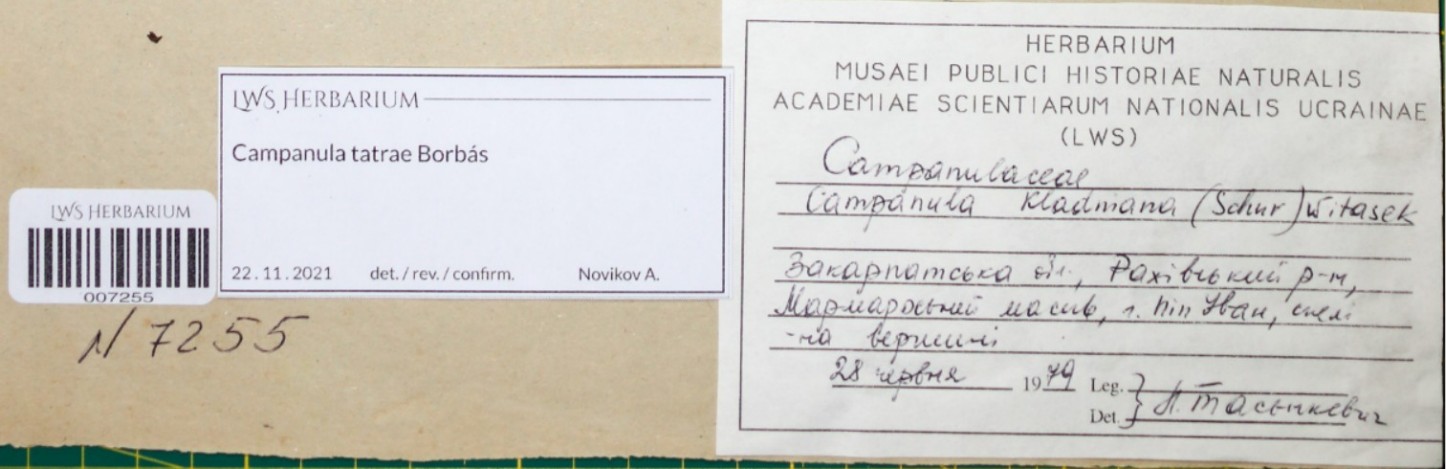 LWS HERBARIUM
007255
N 7255
LWS HERBARIUM
Campanula tatrae Borbás
22.11.2021 det./rev./confirm. Novikov A.
HERBARIUM
MUSAEI PUBLICI HISTORIAE NATURALIS
ACADEMIAE SCIENTIARUM NATIONALIS UCRAINAE
(LWS)
Campanulaceae
Campánula Kladniana (Schur) Witasek
Закарпатська обл., Рахівський р-н,
Мармароський масив, г. Піп Іван, скелі
на вершині
28 червня 1979 Leg.
Det. } Л. Тасєнкевич